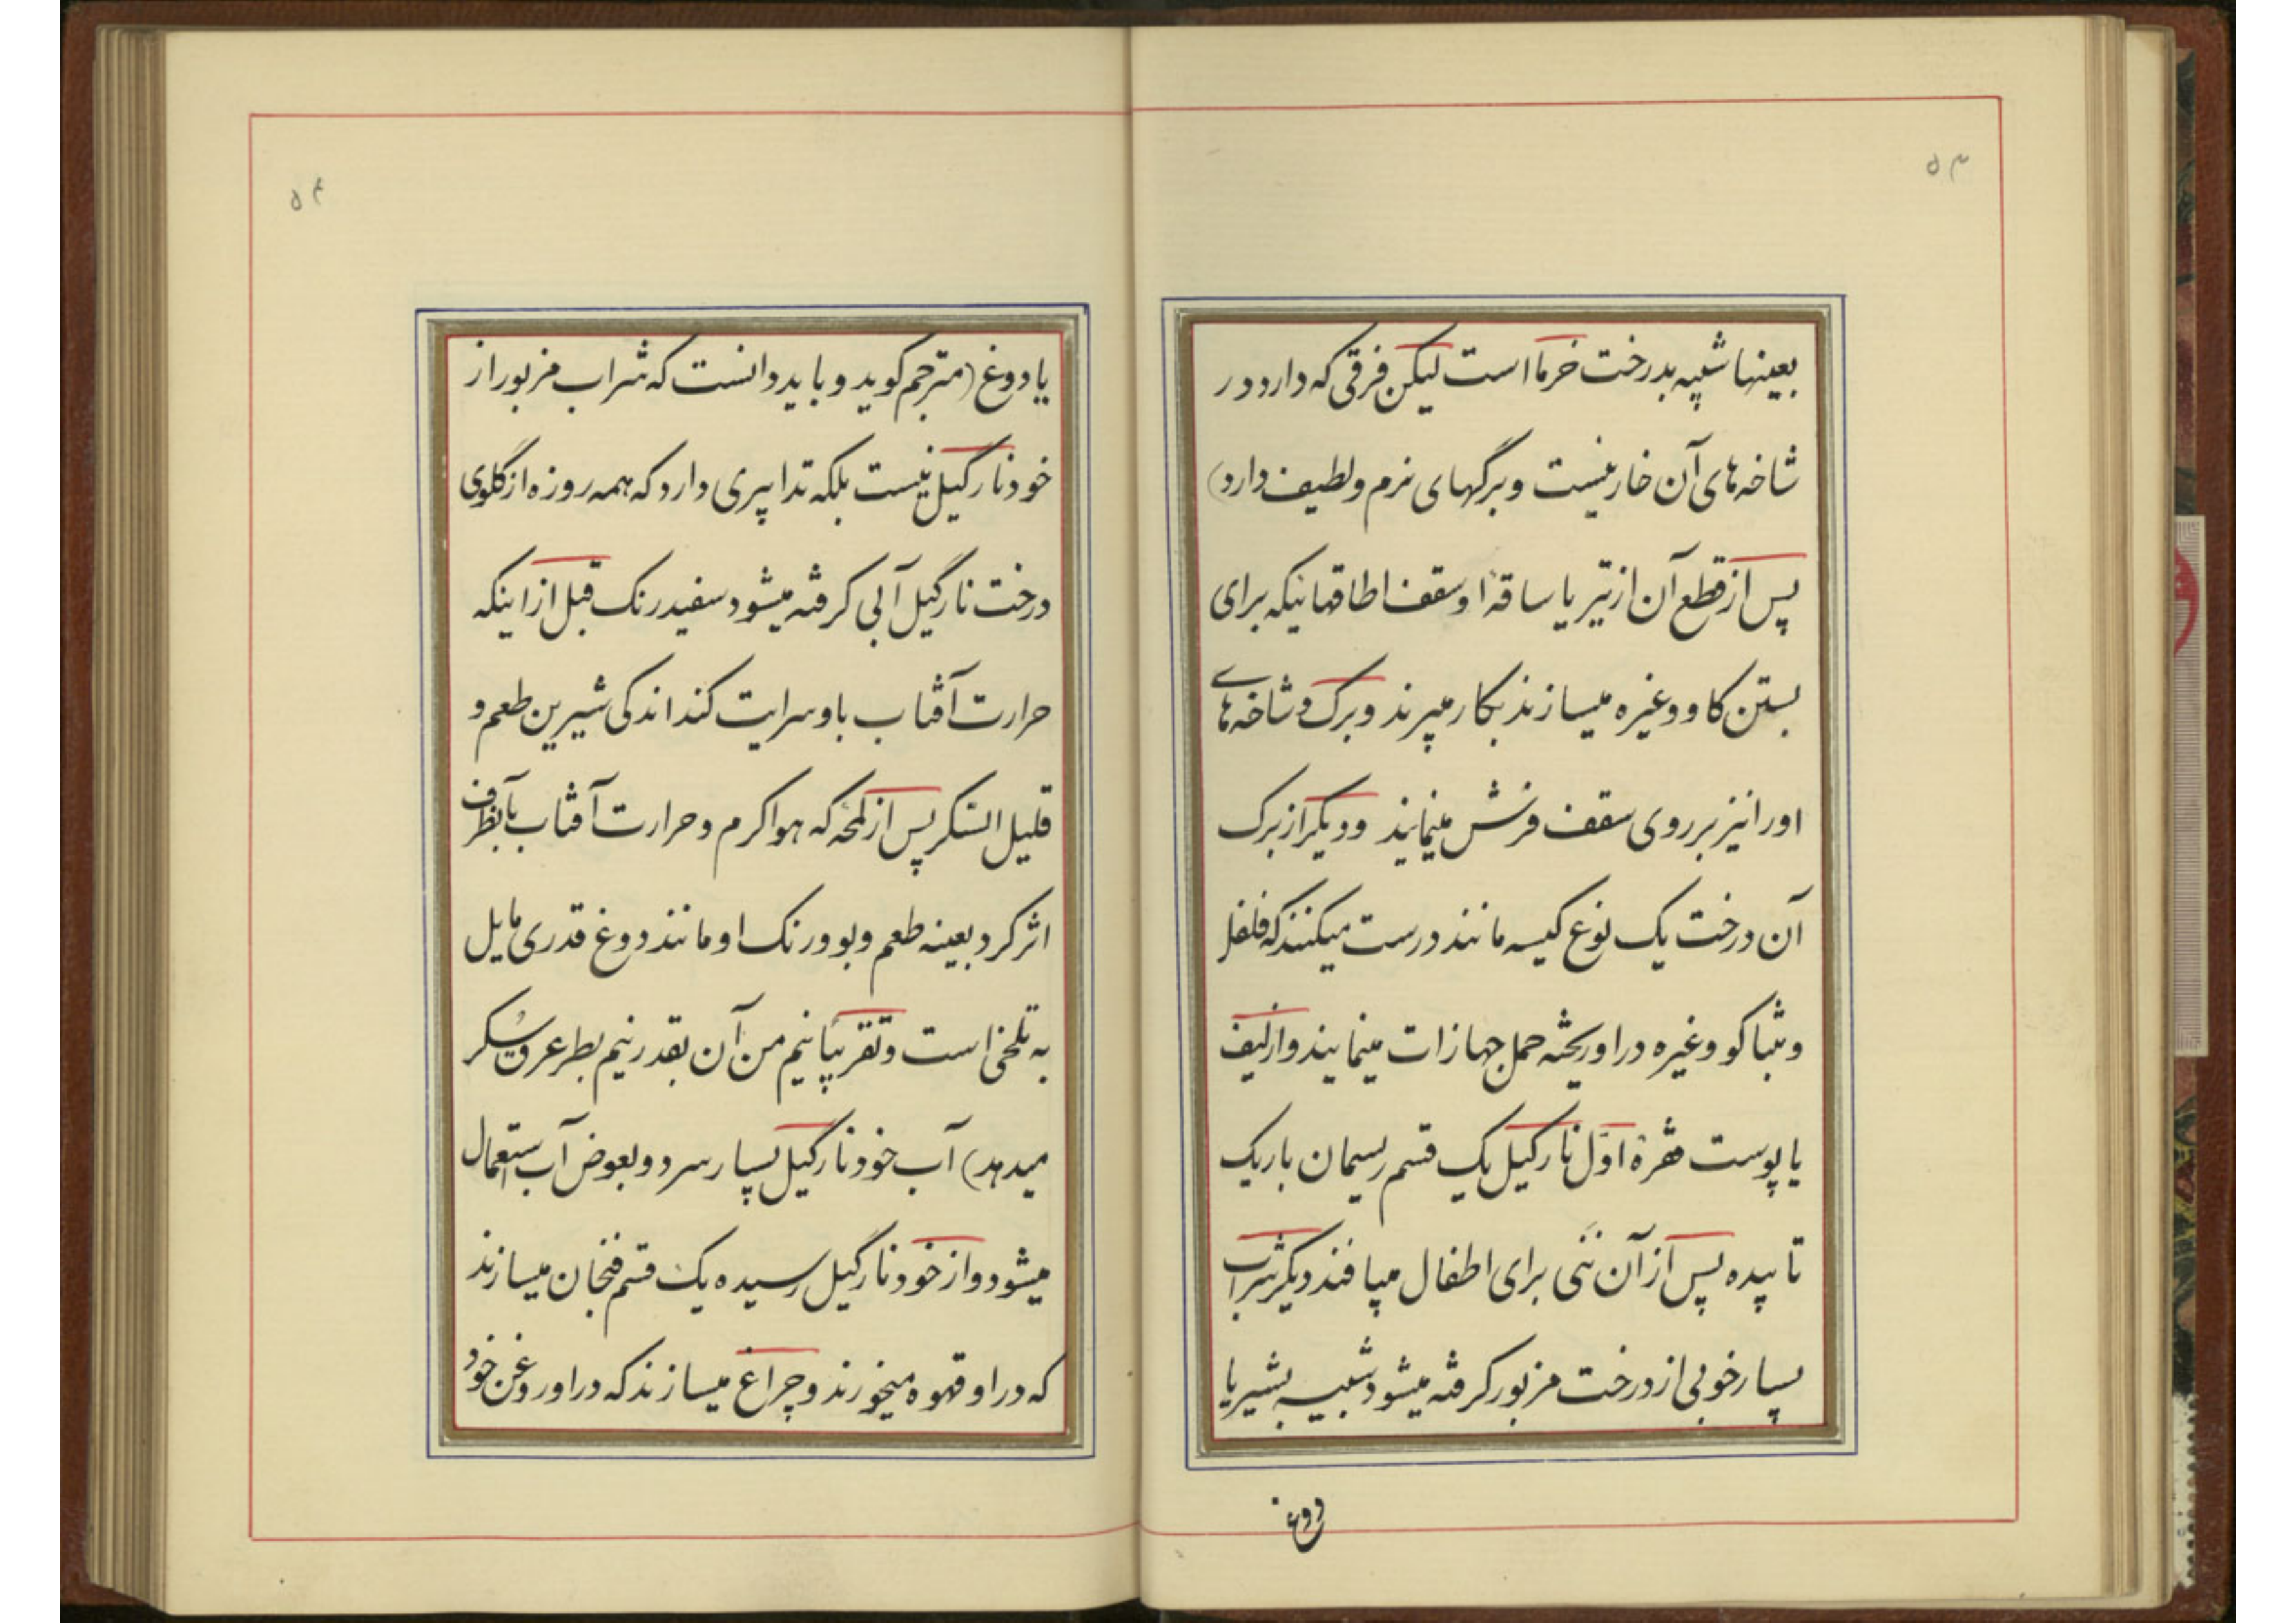 ۵۳
بعینها شبیه بدرخت خرما است لیکن فرقی که دارد در
شاخه های آن خار نیست و برگهای نرم و لطیف دارد)
پس از قطع آن از تیر یا ساقهٔ او سقف اطاقهائیکه برای
بستن کاو وغیره میسازند بکار میبرند و برک و شاخه های
او را نیز بر روی سقف فرش مینمایند و دیکر از برک
آن درخت یک نوع کیسه مانند درست میکنند که فلفل
و تنباکو وغیره در او ریخته حمل جهازات مینمایند و از لیف
یا پوست اوّل نارکیل یک قسم ریسمان باریک
تابیده پس از آن ننی برای اطفال میبافند دیکر شراب
بسیار خوبی از درخت مزبور کرفته میشود شبیه بشیر یا
دوغ
۵۴
یا دوغ (مترجم کوید و باید دانست که شراب مزبور از
خود نارکیل نیست بلکه تدابیری دارد که همه روزه از گلوی
درخت نارگیل آبی کرفته میشود سفید رنک قبل از اینکه
حرارت آفتاب باو سرایت کند اندکی شیرین طعم و
قلیل السکر پس از لمحهٔ که هوا کرم و حرارت آفتاب بآنظرف
اثر کرد بعینه طعم و بو و رنک او مانند دوغ قدری مایل
به تلخی است و تقریباً نیم من آن بقدر نیم بطر عرق سُکر
میدهد) آب خود نارکیل بسیار سرد و بعوض آب استعمال
میشود و از خود نارگیل رسیده یک قسم فنجان میسازند
که در او قهوه میخورند و چراغ میسازند که در او روغن خود